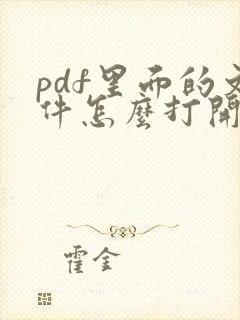 pdf里面的文
件怎麽打開
霍金